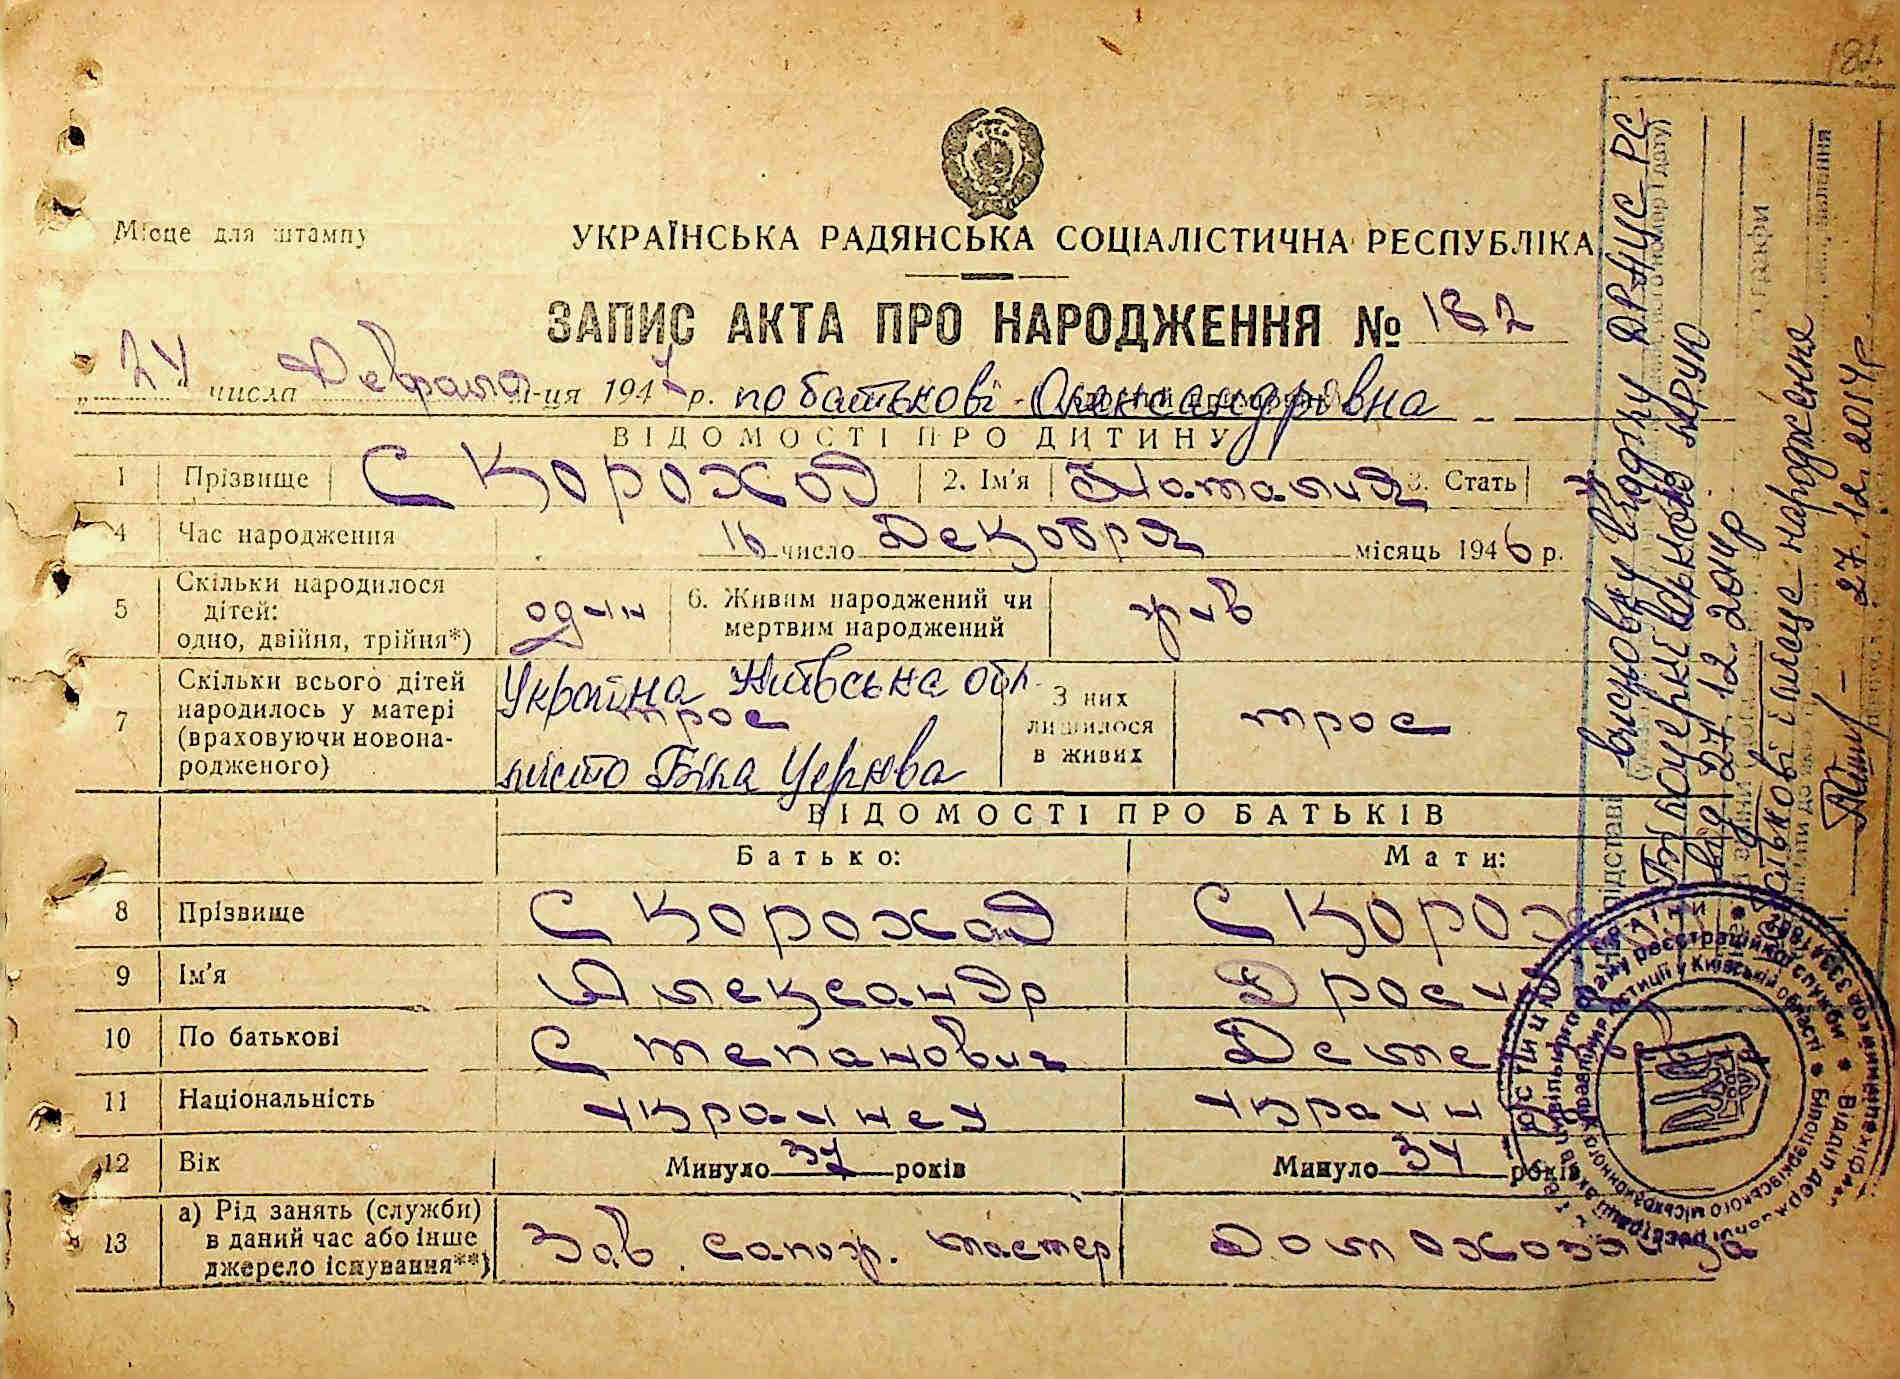 182
Місце для штампу
УКРАЇНСЬКА РАДЯНСЬКА СОЦІАЛІСТИЧНА РЕСПУБЛІКА
ЗАПИС АКТА ПРО НАРОДЖЕННЯ № 182
„24" числа Февраля м-ця 1947 р. по батькові Олександрівна
ВІДОМОСТІ ПРО ДИТИНУ
1 Прізвище Скороход 2. Ім'я Наталия 3. Стать
4 Час народження 16 число Декабря місяць 1946 р.
5 Скільки народилося дітей: одно, двійня, трійня*) один 6. Живим народжений чи мертвим народжений жив
7 Скільки всього дітей народилось у матері (враховуючи новонародженого) трое З них лишилося в живих трое
Україна Київська обл.
місто Біла Церква
ВІДОМОСТІ ПРО БАТЬКІВ
Батько: Мати:
8 Прізвище Скороход Скорох
9 Ім'я Александр
10 По батькові Степанович
11 Національність украинец украин
12 Вік Минуло 37 років Минуло 34 років
13 а) Рід занять (служби) в даний час або інше джерело існування**) Зав. сапож. мастер Домохозяйка
висновку відділу ДРАЦС РС
Білоцерківського МРУЮ
від 27.12.2014р
батькові і місце народження
27.12.2014р.